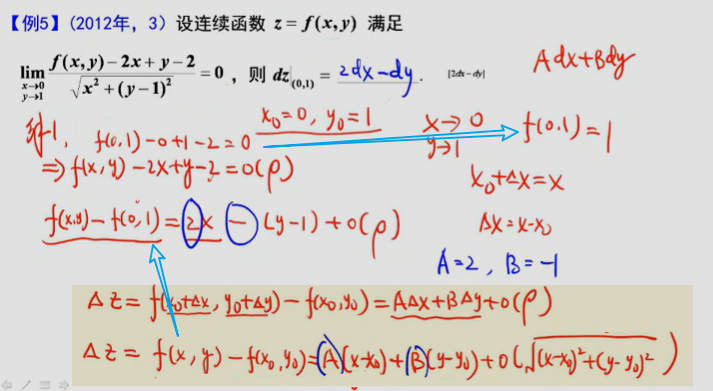 【例5】(2012年，3) 设连续函数 z = f(x,y) 满足
lim x→0 y→1 f(x,y)−2x+y−2 / √x²+(y−1)² = 0，则 dz|(0,1) = 2dx−dy. [2dx−dy]
Adx+Bdy
x₀=0, y₀=1
x→0
y→1
f(0,1)=1
1. f(0,1)−0+1−2=0
⇒ f(x,y)−2x+y−2=o(ρ)
x₀+Δx=x
f(x,y)−f(0,1)=2x−(y−1)+o(ρ)
Δx=x−x₀
A=2, B=−1
Δz=f(x₀+Δx, y₀+Δy)−f(x₀,y₀)=AΔx+BΔy+o(ρ)
Δz=f(x,y)−f(x₀,y₀)=A(x−x₀)+B(y−y₀)+o(√(x−x₀)²+(y−y₀)²)